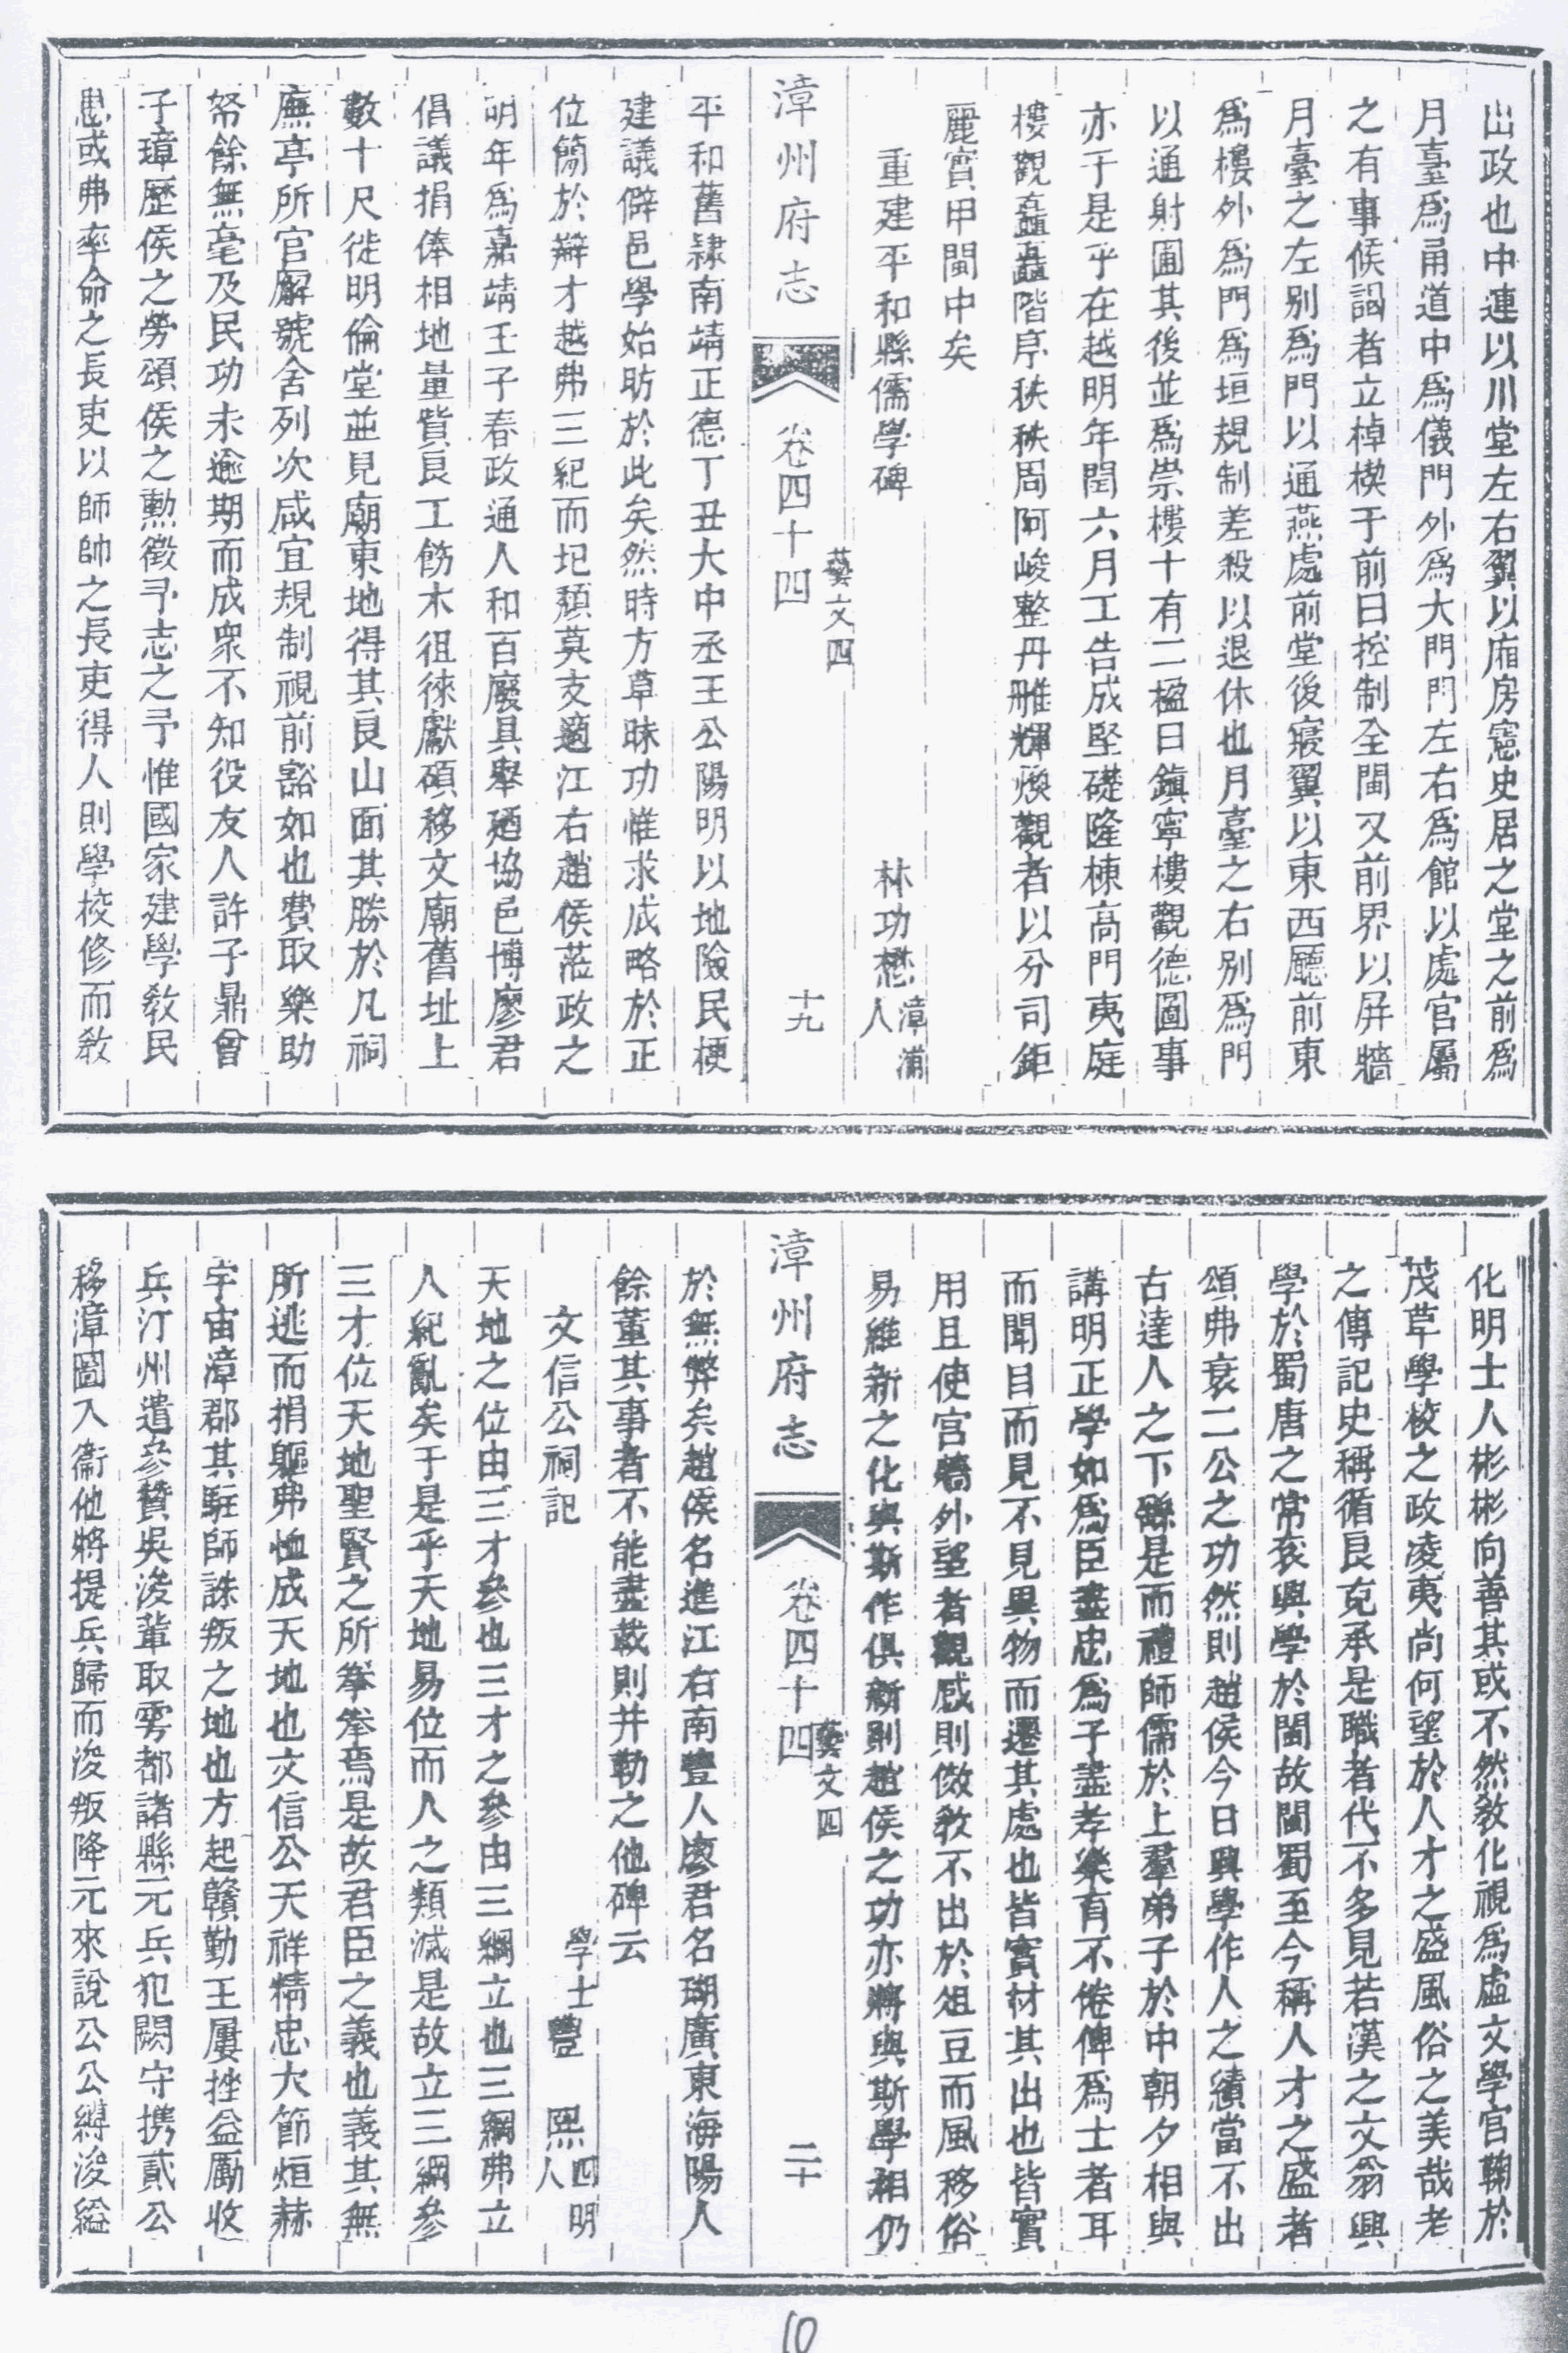 出政也中連以川堂左右翼以廂房憲史居之堂之前爲
月臺爲甬道中爲儀門外爲大門門左右爲館以處官屬
之有事候謁者立棹楔于前曰控制全閩又前界以屏牆
月臺之左別爲門以通燕處前堂後寢翼以東西廳前東
爲樓外爲門爲垣規制差殺以退休也月臺之右別爲門
以通射圃其後並爲崇樓十有二楹曰鎭寧樓觀德圃事
亦于是乎在越明年閏六月工告成堅礎隆棟高門夷庭
樓觀矗矗階序秩秩周阿峻整丹雘輝煥觀者以分司鉅
麗實甲閩中矣
重建平和縣儒學碑
林功懋漳浦人
漳州府志
卷四十四
藝文四
十九
平和舊隸南靖正德丁丑大中丞王公陽明以地險民梗
建議僻邑學始昉於此矣然時方草昧功惟求成略於正
位簡於辯才越弗三紀而圮頹莫支適江右趙侯蒞政之
明年爲嘉靖壬子春政通人和百廢具舉廼協邑博廖君
倡議捐俸相地量貲良工飭木徂徠獻碩移文廟舊址上
數十尺徙明倫堂並見廟東地得其良山面其勝於凡祠
廡亭所官廨號舍列次咸宜規制視前豁如也費取樂助
帑餘無毫及民功未逾期而成衆不知役友人許子鼎曾
子璋歷侯之勞頌侯之勳徵予志之予惟國家建學敎民
患或弗率命之長吏以師帥之長吏得人則學校修而敎
化明士人彬彬向善其或不然敎化視爲虛文學官鞠於
茂草學校之政凌夷尚何望於人才之盛風俗之美哉老
之傳記史稱循良克承是職者代不多見若漢之文翁興
學於蜀唐之常袞興學於閩故閩蜀至今稱人才之盛者
頌弗衰二公之功然則趙侯今日興學作人之績當不出
古達人之下繇是而禮師儒於上羣弟子於中朝夕相與
講明正學如爲臣盡忠爲子盡孝樂有不倦俾爲士者耳
而聞目而見不見異物而遷其處也皆實材其出也皆實
用且使宮牆外望者觀感則傚敎不出於俎豆而風移俗
易維新之化與斯作俱新則趙侯之功亦將與斯學相仍
漳州府志
卷四十四
藝文四
二十
於無弊矣趙侯名進江右南豐人廖君名瑚廣東海陽人
餘董其事者不能盡載則并勒之他碑云
文信公祠記
學士豐熙四明人
天地之位由三才參也三才之參由三綱立也三綱弗立
人紀亂矣于是乎天地易位而人之類滅是故立三綱參
三才位天地聖賢之所拳拳焉是故君臣之義也義其無
所逃而捐軀弗恤成天地也文信公天祥精忠大節烜赫
宇宙漳郡其駐師誅叛之地也方起贛勤王屢挫益勵收
兵汀州遣參贊吳浚輩取雩都諸縣元兵犯闕守携貳公
移漳圖入衞他將提兵歸而浚叛降元來說公公縛浚縊
10